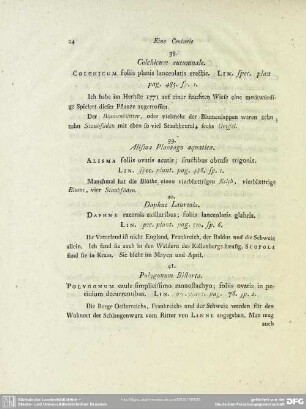 24 Eine Centurie
38.
Colchicum autumnale.
COLCHICUM foliis planis lanceolatis erectis. LIN. spec. plant.
pag. 485. sp. 1.
Ich habe im Herbste 1771 auf einer feuchten Wiese eine merkwürdi-
ge Spielart dieser Pflanze angetroffen.
Der Blumenblätter, oder vielmehr der Blumenlappen waren zehn,
zehn Staubfäden mit eben so viel Staubbeutel, sechs Griffel.
39.
Alisma Plantago aquatica.
ALISMA foliis ovatis acutis; fructibus obtuse trigonis.
LIN. spec. plant. pag. 486. sp. 1.
Manchmal hat die Blüthe einen vierblättrigen Kelch, vierblättrige
Blume, vier Staubfäden.
40.
Daphne Laureola.
DAPHNE racemis axillaribus; foliis lanceolatis glabris.
LIN. spec. plant. pag. 510. sp. 6.
Ihr Vaterland ist nicht England, Frankreich, der Baldus und die Schweiz
allein. Ich fand sie auch in den Wäldern des Kallenbergs häufig. SCOPOLI
fand sie in Krain. Sie blüht im Mayen und April.
41.
Polygonum Bistorta.
POLYGONUM caule simplicissimo monostachyo; foliis ovatis in pe-
tiolum decurrentibus. LIN. pag. sp. 2.
Die Berge Oesterreichs, Frankreichs und der Schweiz werden für den
Wohnort der Schlangenwurz vom Ritter von LINNE angegeben. Man mag
auch